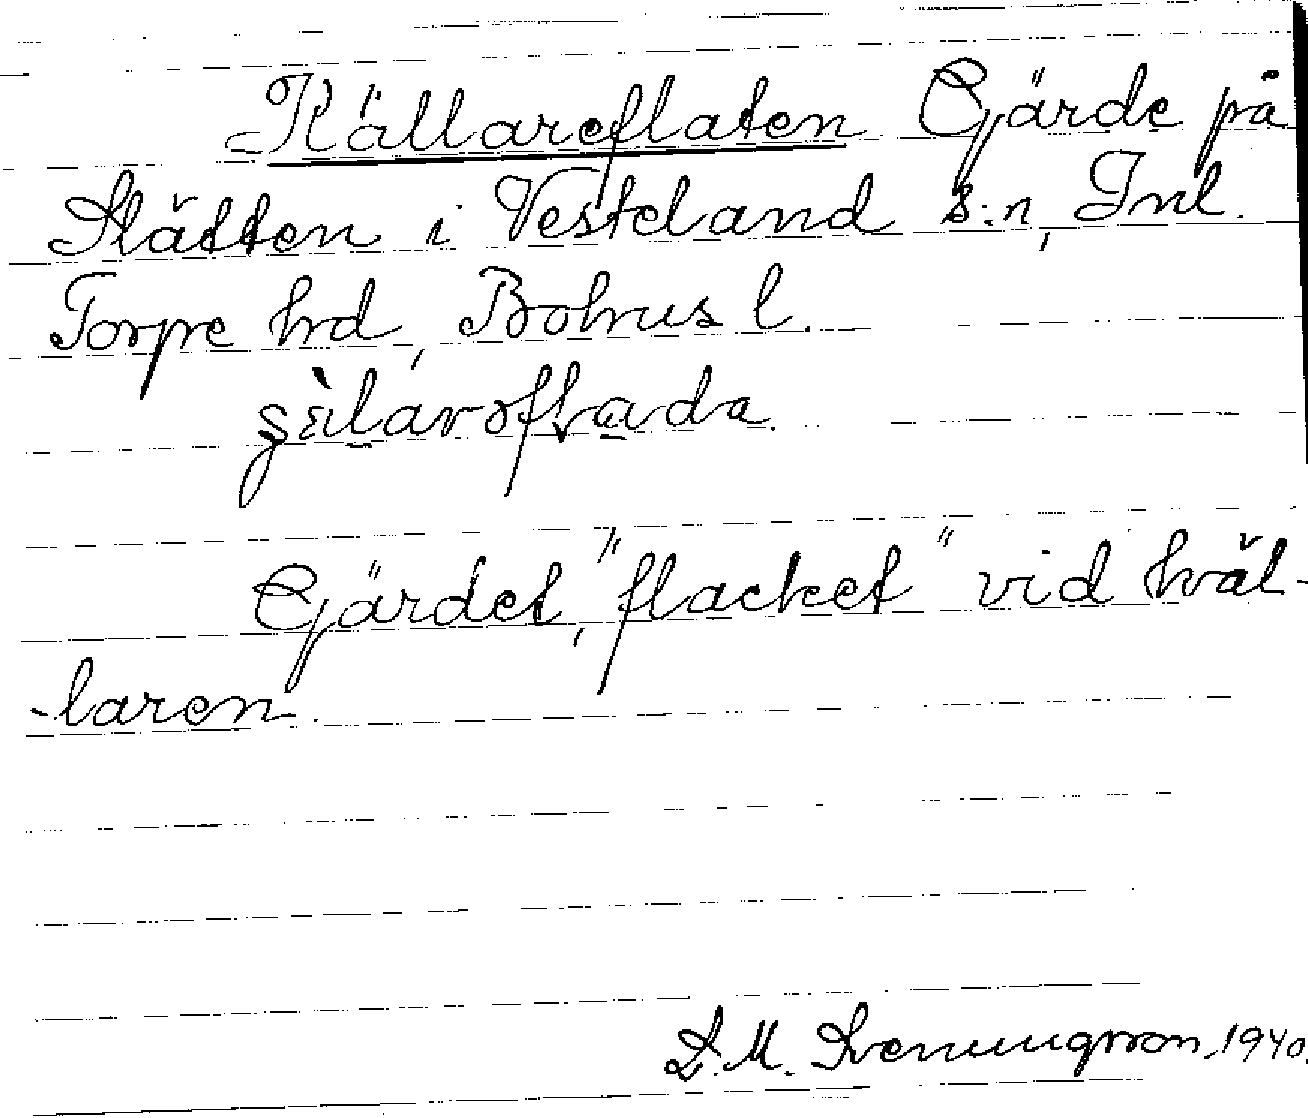 Källareflaten Gjärde på
Slätten i Vesteland s:n, Inl.
Torpe hrd, Bohus l.
Gjärdet, "flacket" vid käl-
-laren.
S. M. Sveningsson, 1940.